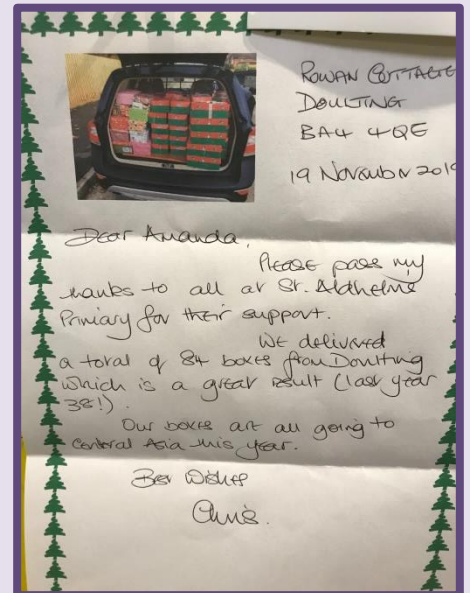 ROWAN COTTAGE
DOULTING
BA4 4QE
19 November 2019
Dear Amanda,
Please pass my
thanks to all at St. Aldhelms
Primary for their support.
We delivered
a total of 84 boxes from Doulting
which is a great result (last year
38!).
Our boxes are all going to
Central Asia this year.
Best Wishes
Chris.